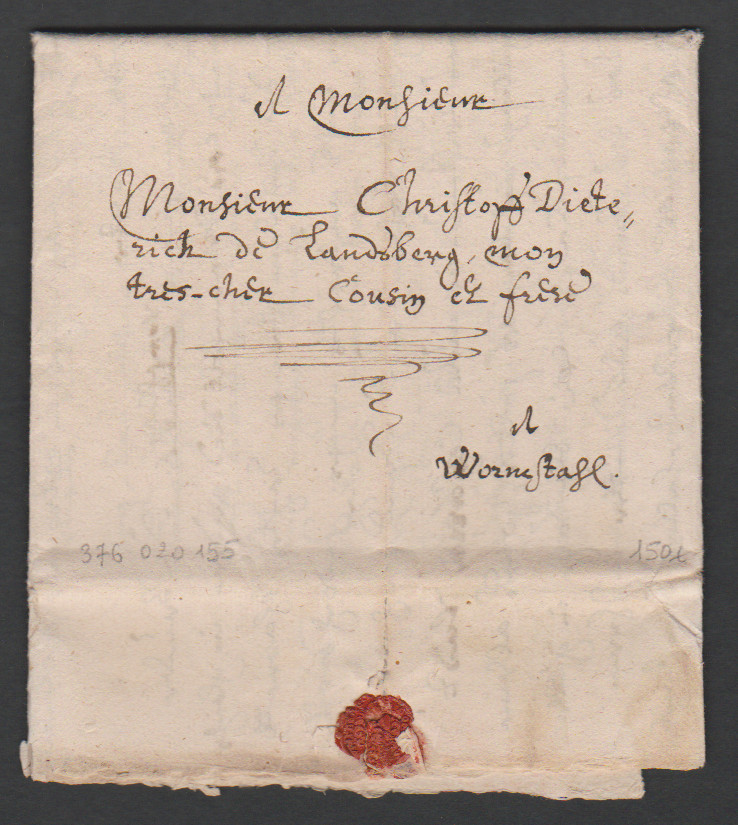 A Monsieur
Monsieur Christoff Diete„
rich de Landsberg, mon
tres-cher Cousin et frere
A
Wormstahl.
376 020 155